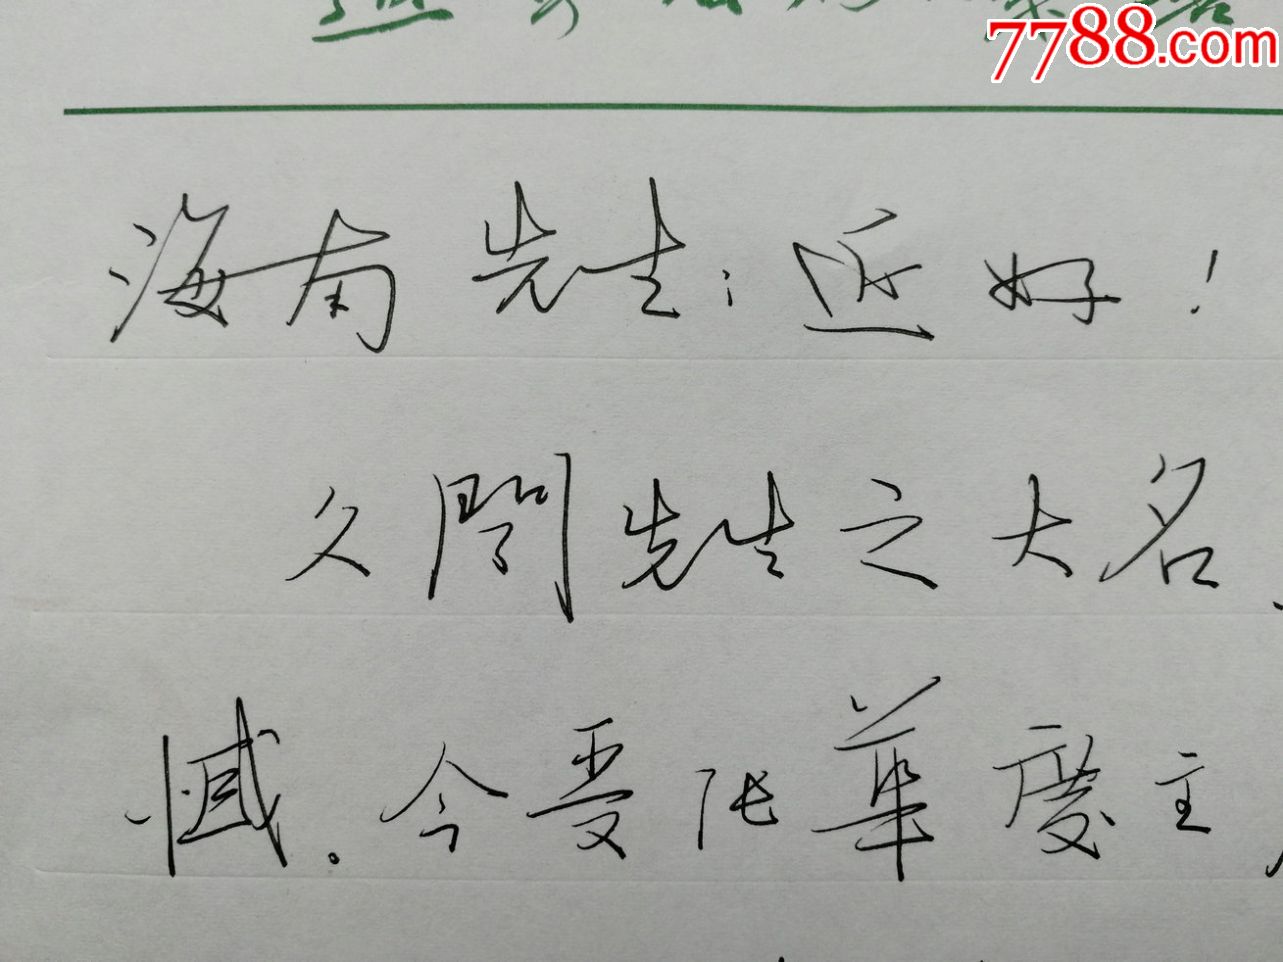 7788.com
海南先生：近好！
久闻先生之大名、
憾．今受张華慶主